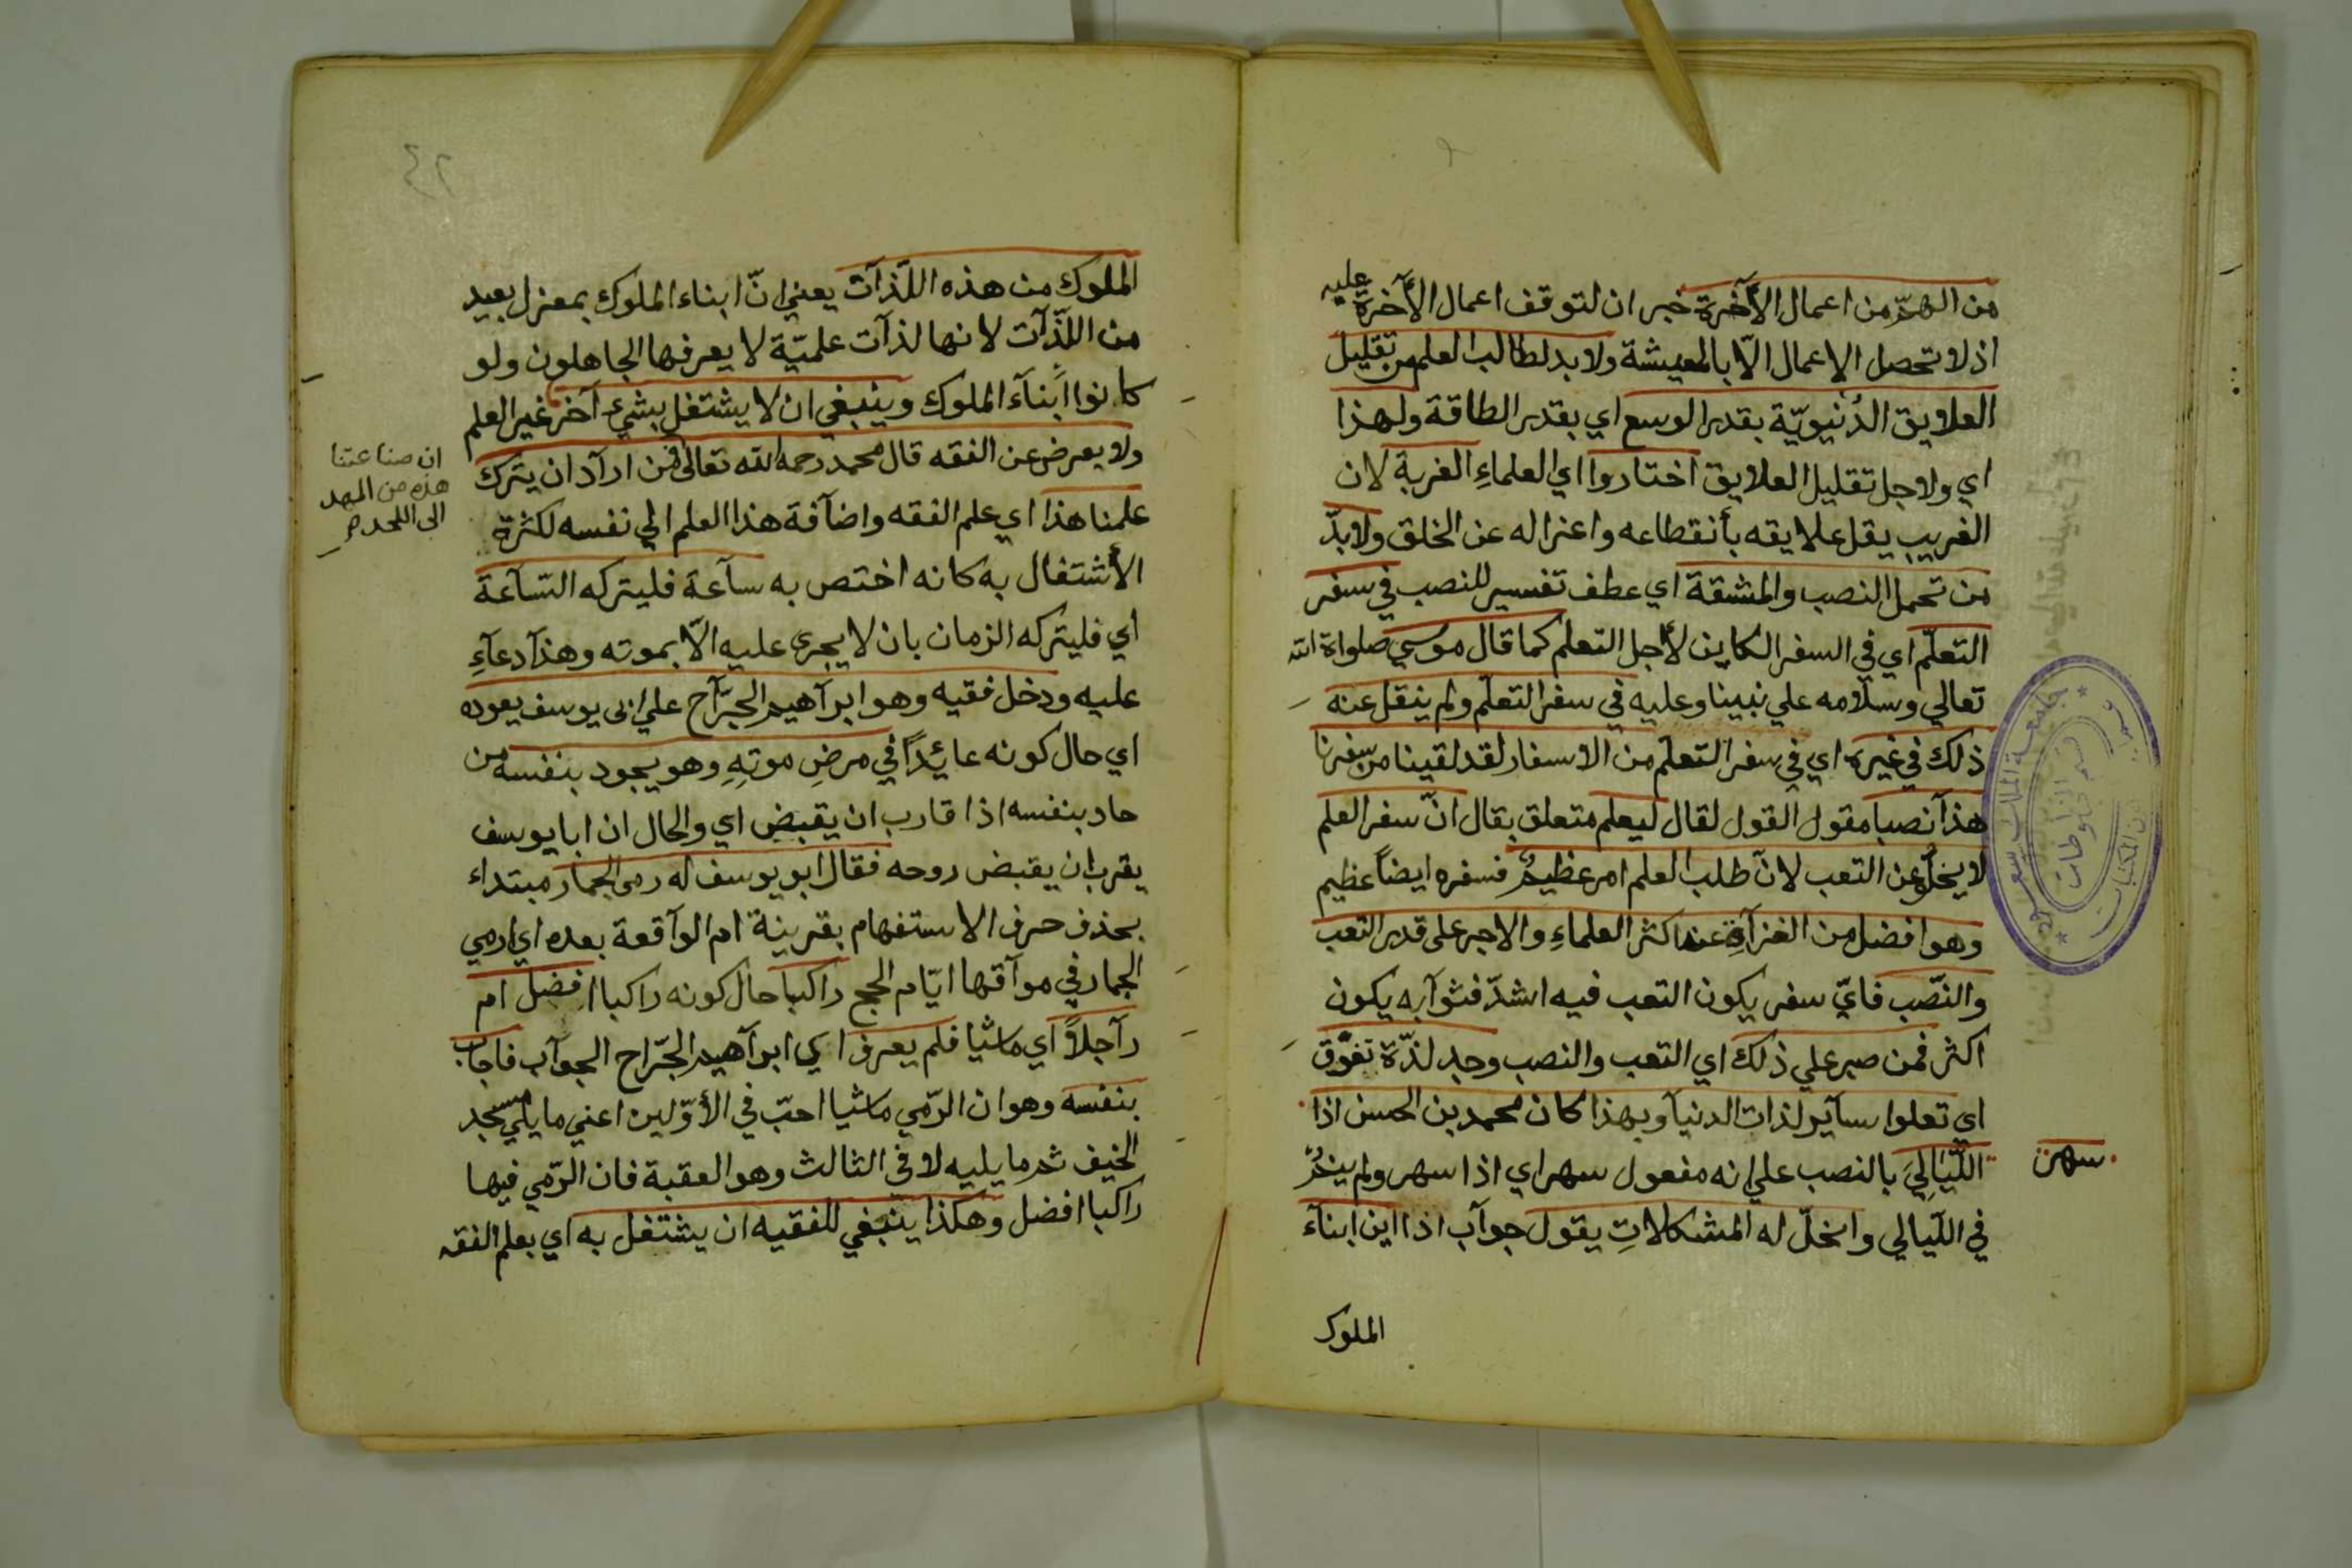 من الهمّ من اعمال الآخرة خبر ان لتوقف اعمال الآخرة عليه
اذ لا تحصل الاعمال الّا بالمعيشة ولا بد لطالب العلم من تقليل
العلايق الدُنيويّة بقدر الوسع اي بقدر الطاقة ولهذا
اي ولاجل تقليل العلايق اختاروا اي العلماءِ الغربة لان
الغريب يقل علايقه بأنقطاعه واعتراله عن الخلق ولابدّ
من تحمل النصب والمشقة اي عطف تفسير للنصب في سفر
التعلّم اي في السفر الكاين لأجل التعلم كما قال موسي صلواة الله
تعالي وسلامه علي نبينا وعليه في سفر التعلّم ولم ينقل عنه
ذلك في غيره اي في سفر التعلّم من الاسفار لقد لقينا من سفرنا
هذآ نصبا مقول القول لقال ليعلم متعلق بقال انّ سفر العلم
لا يخلُو عن التعب لانّ طلب العلم امر عظيمٌ فسفره ايضاً عظيم
وهو افضل من الغزآةِ عند اكثر العلماءِ والاجر على قدر التعب
والنّصب فايّ سفر يكون التعب فيه اشدّ فثوآبه يكون
اكثر فمن صبر علي ذلك اي التعب والنصب وجد لذّة تفوّق
اي تعلوا سآير لذات الدنيآ وبهذا كان محمد بن الحسن اذا
سهر
اللّيَالِيَ بالنصب علي انه مفعول سهر اي اذا سهر ولم ينمْ
في اللّيالي وانحلّ له المشكلاتِ يقول جوآب اذا اين ابنآء
الملوك
٤٢
الملوك من هذه اللّذآت يعني انّ ابناء الملوك بمعزل بعيد
من اللّذّآت لانها لذآت علميّة لا يعرفها الجاهلون ولو
كانوا أبنآء الملوك وينبغي ان لا يشتغل بشيء آخر غير العلم
ولا يعرض عن الفقه قال محمد رحمه الله تعالى فمن ارآد ان يترك
ان صناعتنا
هذه من المهد
الى اللحد
علمنا هذا اي علم الفقه واضآفة هذا العلم الي نفسه لكثرة
الأشتغال به كانه اختص به سآعة فليتركه السّآعة
اي فليتركه الزمان بان لا يجرى عليه الّا بموته وهذآ دعآءِ
عليه ودخل فقيه وهو ابرآهيم الجرّآح علي ابى يوسف يعوده
اي حال كونه عائِداً في مرضِ موتِهِ وهو يجود بنفسه من
حاد بنفسه اذا قارب ان يقبض اي والحال ان ابا يوسف
يقرب ان يقبض روحه فقال ابو يوسف له رمى الجمار مبتداء
بحذف حرف الاستفهام بقرينة ام الوآقعة بعده اي ارمي
الجمار في موآقها ايّام الحج راكبا حال كونه راكبا افضل ام
رآجلاً اي ماشيا فلم يعرف اي ابرآهيم الجرّاح الجوآب فاجاب
بنفسه وهو ان الرّمي ماشيا احبّ في الأوّلين اعني ما يلي مسجد
الخيف ثم ما يليه لا فى الثالث وهو العقبة فان الرّمي فيها
راكبا افضل وهكذا ينبغي للفقيه ان يشتغل به اي بعلم الفقه